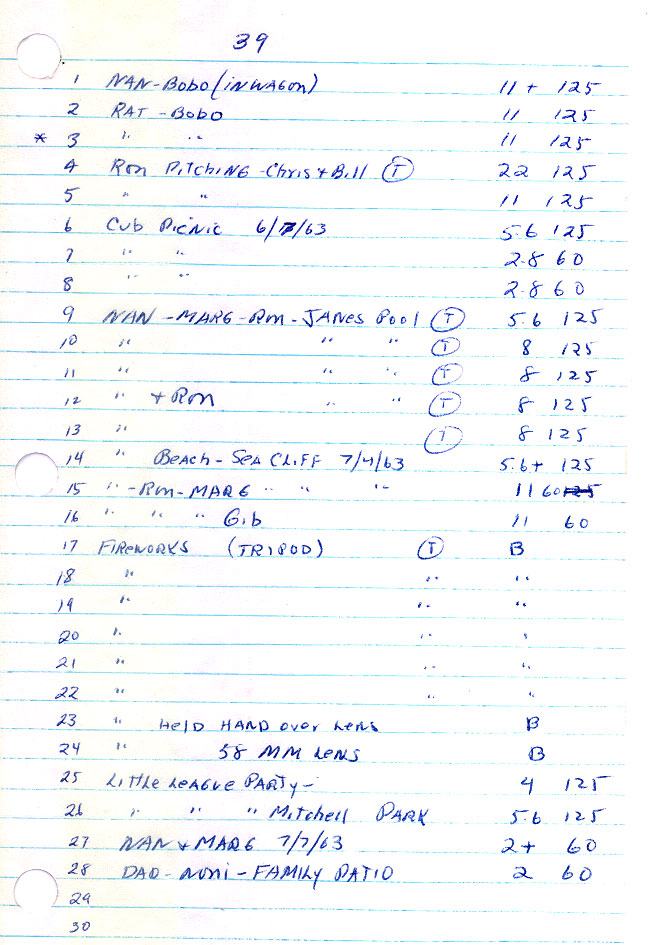 39
1 NAN-Bobo (IN WAGON) 11 + 125
2 RAT-Bobo 11 125
* 3 " " 11 125
4 Ron PitchiNG-Chris + Bill T 22 125
5 " " 11 125
6 Cub PicNic 6/7/63 5.6 125
7 " " 2.8 60
8 " " 2.8 60
9 NAN-MARG-Rm-JANes Pool T 5.6 125
10 " " " T 8 125
11 " " " T 8 125
12 " + Ron " " T 8 125
13 " T 8 125
14 " BeAch-SeA CLiFF 7/4/63 5.6+ 125
15 "-Rm-MARG " " " 11 60 125
16 " " " Gib 11 60
17 FiReWORKS (TRIPOD) T B
18 " " "
19 " " "
20 " " "
21 " " "
22 " " "
23 " HelD HAND over LeNs B
24 " 58 MM LeNS B
25 LittLe LeAGue PARTy- 4 125
26 " " " Mitchell PARK 5.6 125
27 NAN + MARG 7/7/63 2+ 60
28 DAD-NONi-FAMILy PATIO 2 60
29
30